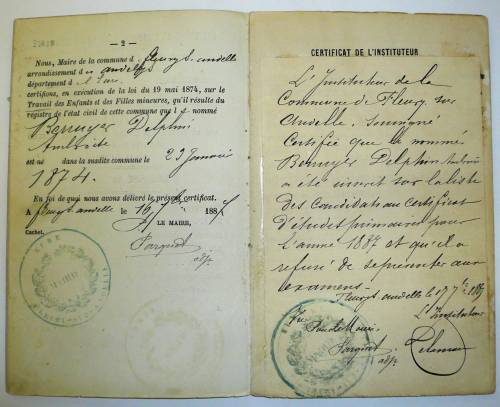 — 2 —
Nous, Maire de la commune d fleury s. andelle
arrondissement des andelys
département de l'Eure
certifions, en exécution de la loi du 19 mai 1874, sur le
Travail des Enfants et des Filles mineures, qu'il résulte du
registre de l'état civil de cette commune que l nommé
Delphin
Ambroise
est né dans la susdite commune le 23 Janvier
1874.
En foi de quoi nous avons délivré le présent certificat.
A fleury s. andelle le 16 7bre 188
Cachet. LE MAIRE,
adjt
CERTIFICAT DE L'INSTITUTEUR
L'Instituteur de la
Commune de Fleury sur
Andelle, soussigné
Certifie que le nommé
Delphin
a été inscrit sur la liste
des Candidats au Certificat
d'études primaires pour
l'année 1887 et qu'il a
refusé de se présenter aux
examens.
Fleury s. andelle le 17 7bre 1887
Vu L'Instituteur
Pour le Maire
adjt